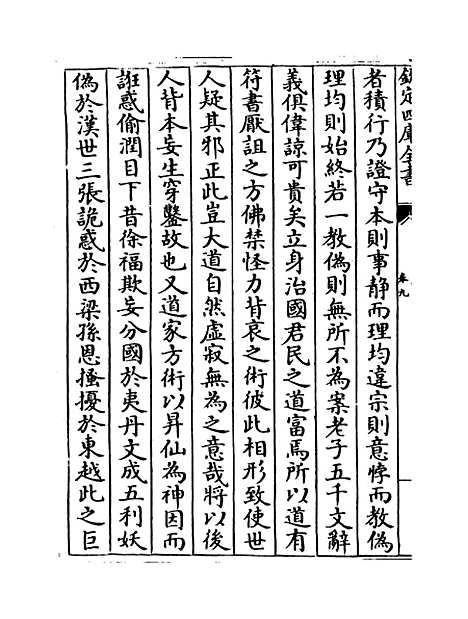 欽定四庫全書
卷九
者積行乃證守本則事静而理均違宗則意悖而教偽
理均則始終若一教偽則無所不為案老子五千文辭
義俱偉諒可貴矣立身治國君民之道富焉所以道有
符書厭詛之方佛禁怪力背哀之術彼此相形致使世
人疑其邪正此豈大道自然虚寂無為之意哉將以後
人背本妄生穿鑿故也又道家方術以昇仙為神因而
誑惑偷潤目下昔徐福欺妄分國於夷丹文成五利妖
偽於漢世三張詭惑於西梁孫恩搔擾於東越此之巨